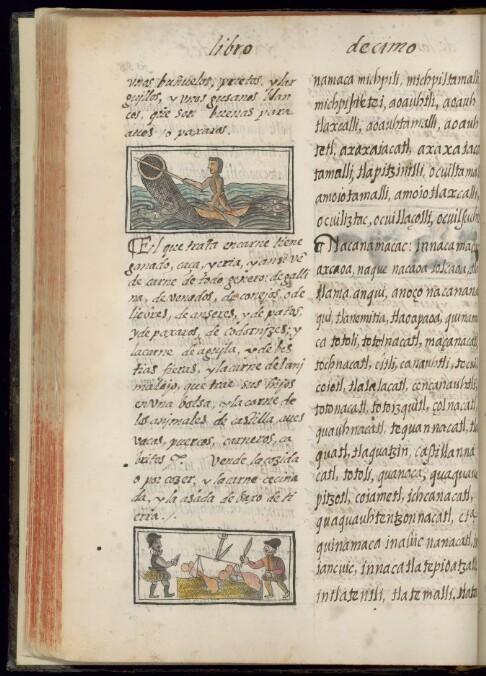 libro decimo
unos buñuelos, prietos, y lar
guillos, y unos gusanos blan
cos, que son buenos para
aues o paxaros.
El que trata en carne tiene
ganado, caça, y cria, y ansi ve
de carne de todo genero: de galli
na, de venados, de conejos, o de
liebres, de anseres, y de patos,
y de paxaros, de codornizes; y
la carne de aguila, y de bes
tias fieras, y la carne del ani
malejo, que trae sus hijos
en una bolsa, y la carne de
los animales de castilla aues
vacas, puercos, carneros, ca
britos Vende la cozida
o por cozer, y la carne cecina
da, y la asada de baxo de ti
erra.
namaca michpili, michpiltamalli
michpiltetei, aoauhtli, aoauh
tlaxcalli, aoauhtamalli, aoauh
tetl, axaxaiacatl, axaxaiaca
tamalli, tlapitzinilli, ocuiltama
amoiotamalli, amoiotlaxcalli,
ocuiliztac, ocuillaçolli,
Nacanamacac: in nacanamac
nacaoa,
tlama
qui, tlanemitia, tlaoapaoa, quinam
ca totoli, totolnacatl, maçanacatl
tochnacatl, citli, canauhtli,
coiotl, tlalalacatl, concanauhtli
totonacatl, totoizquitl, çolnacatl
quauhnacatl, tequannacatl,
quatl, tlaquatzin, castillan na
catl, totoli, quanaca, quaquauh
pitzotl, coiametl, ichcanacatl,
quaquauhtentzonnacatl,
quinamaca inaiuic nanacatl,
iancuic, in nacatlatepitatzal
intlatentli, tlatemalli,